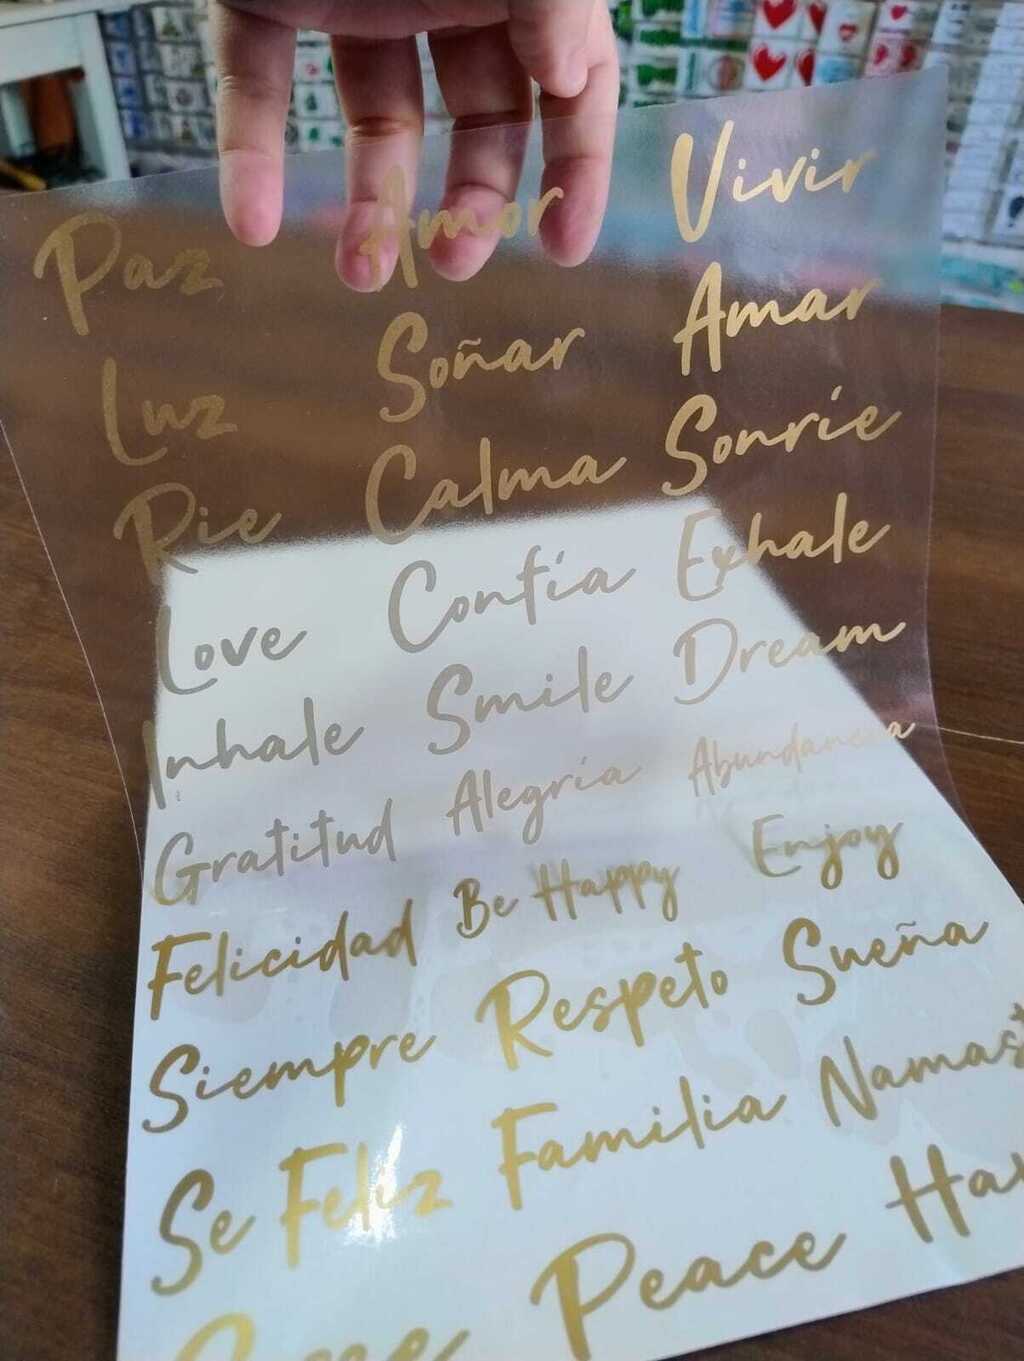 Paz Amor Vivir
Luz Soñar Amar
Rie Calma Sonríe
Love Confía Exhale
Inhale Smile Dream
Gratitud Alegría Abundancia
Felicidad Be Happy Enjoy
Siempre Respeto Sueña
Se Feliz Familia
Peace